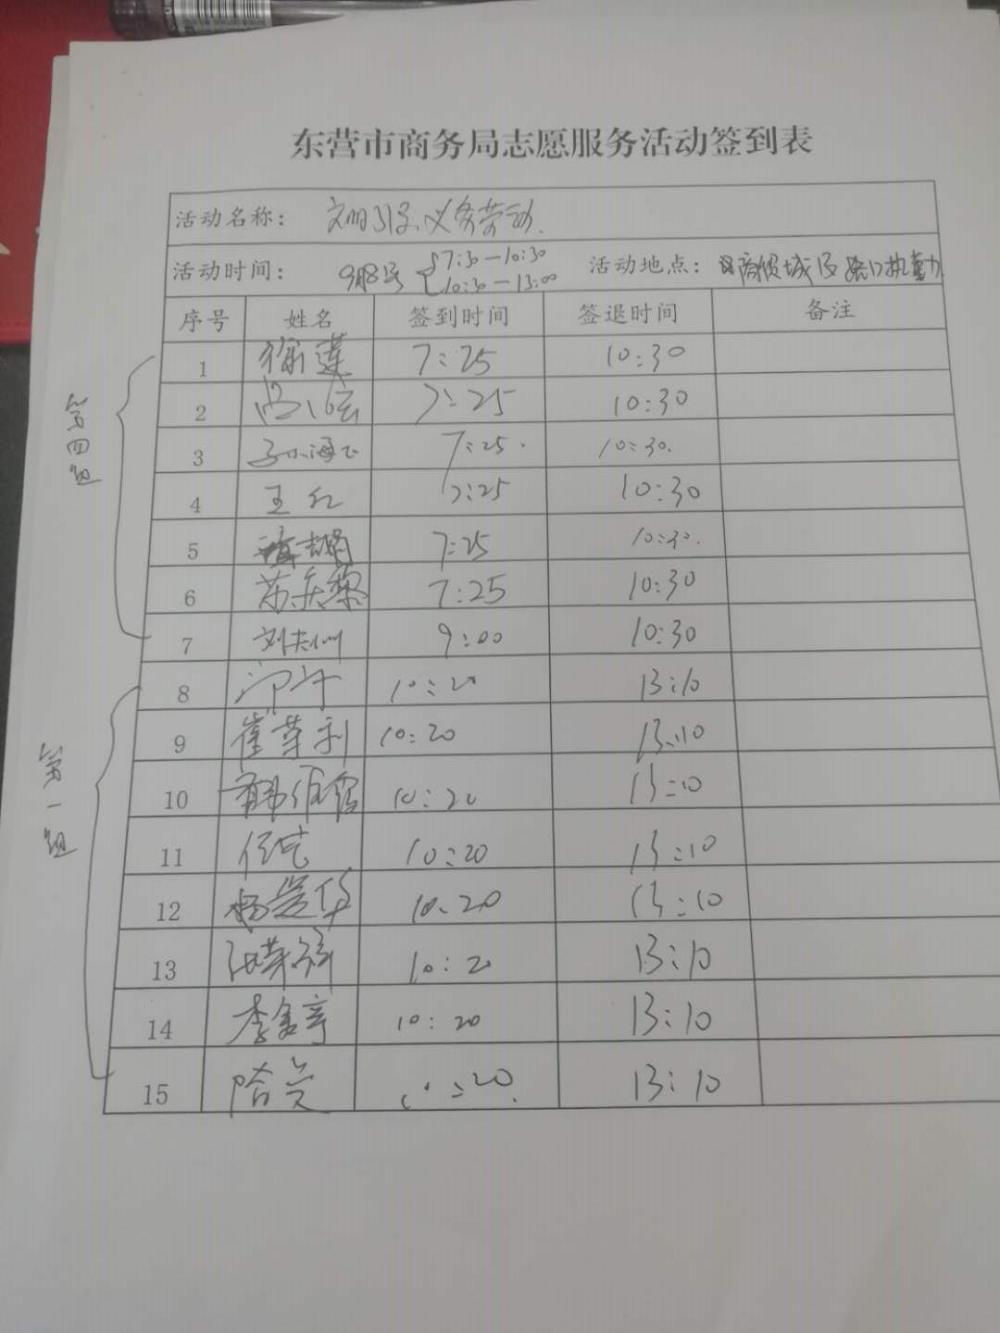 东营市商务局志愿服务活动签到表
活动名称： 文明引导、义务劳动
活动时间： 9月8号 7:30—10:30 10:30—13:00 活动地点： 商贸城区路口执勤
序号 姓名 签到时间 签退时间 备注
第四组
1 徐莲 7:25 10:30
2 7:25 10:30
3 7:25 10:30
4 王红 7:25 10:30
5 7:25 10:30
6 苏 7:25 10:30
7 刘 9:00 10:30
第一组
8 10:20 13:10
9 崔 利 10:20 13:10
10 韩 10:20 13:10
11 任 10:20 13:10
12 杨 华 10:20 13:10
13 10:20 13:10
14 李 10:20 13:10
15 :20 13:10